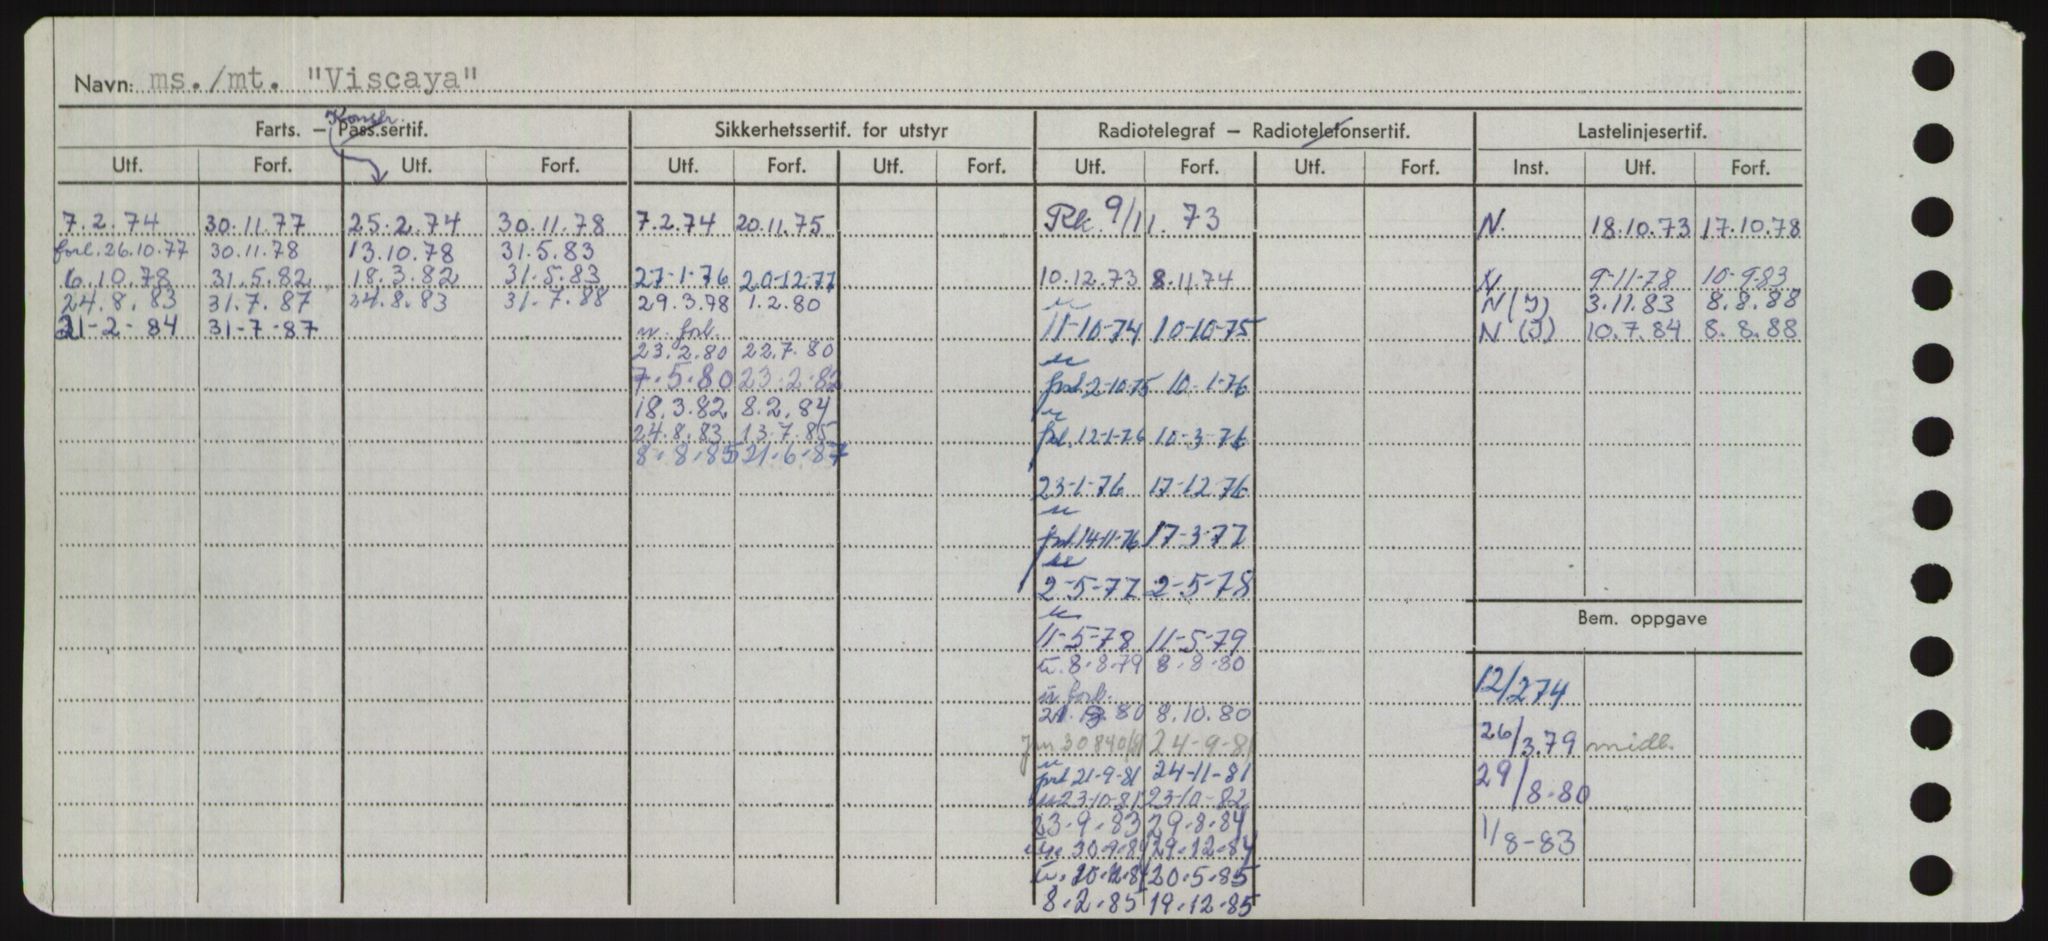 Navn: ms./mt. "Viscaya"
Konstr.
Farts. – Pass.sertif. Sikkerhetssertif. for utstyr Radiotelegraf – Radiotelefonsertif. Lastelinjesertif.
Utf. Forf. Utf. Forf. Utf. Forf. Utf. Forf. Utf. Forf. Utf. Forf. Inst. Utf. Forf.
7.2.74 30.11.77 25.2.74 30.11.78 7.2.74 20.11.75 Rk. 9/11.73 N. 18.10.73 17.10.78
forl. 26.10.77 30.11.78 13.10.78 31.5.83
6.10.78 31.5.82 18.3.82 31.5.83 27-1-76 20-12-77 10.12.73 8.11.74 N 9-11-78 10-9-83
24.8.83 31.7.87 24.8.83 31.7.88 29.3.78 1.2.80 N(I) 3.11.83 8.8.88
21-2-84 31-7-87 u. forl. 11-10-74 10-10-75 N(I) 10.7.84 8.8.88
23.2.80 22.7.80
7.5.80 23.2.82 forl. 2-10-75 10-1-76
18.3.82 8.2.84
24.8.83 13.7.85 forl. 12-1-76 10-3-76
8.8.85 21.6.87
23-1-76 17-12-76
u
forl. 14-11-76 17-3-77
u
2-5-77 2-5-78
u
Bem. oppgave
11-5-78 11-5-79
u. 8.8.79 8.8.80
u. forl. 12/274
80 8.10.80
26/3.79 midl.
24-9-81
forl. 21-9-81 24-11-81 29/8-80
u 23-10-81 23-10-82
23.9.83 29.8.84 1/8-83
30.9.84 29.12.84
u. 20.5.85
8.2.85 19.12.85